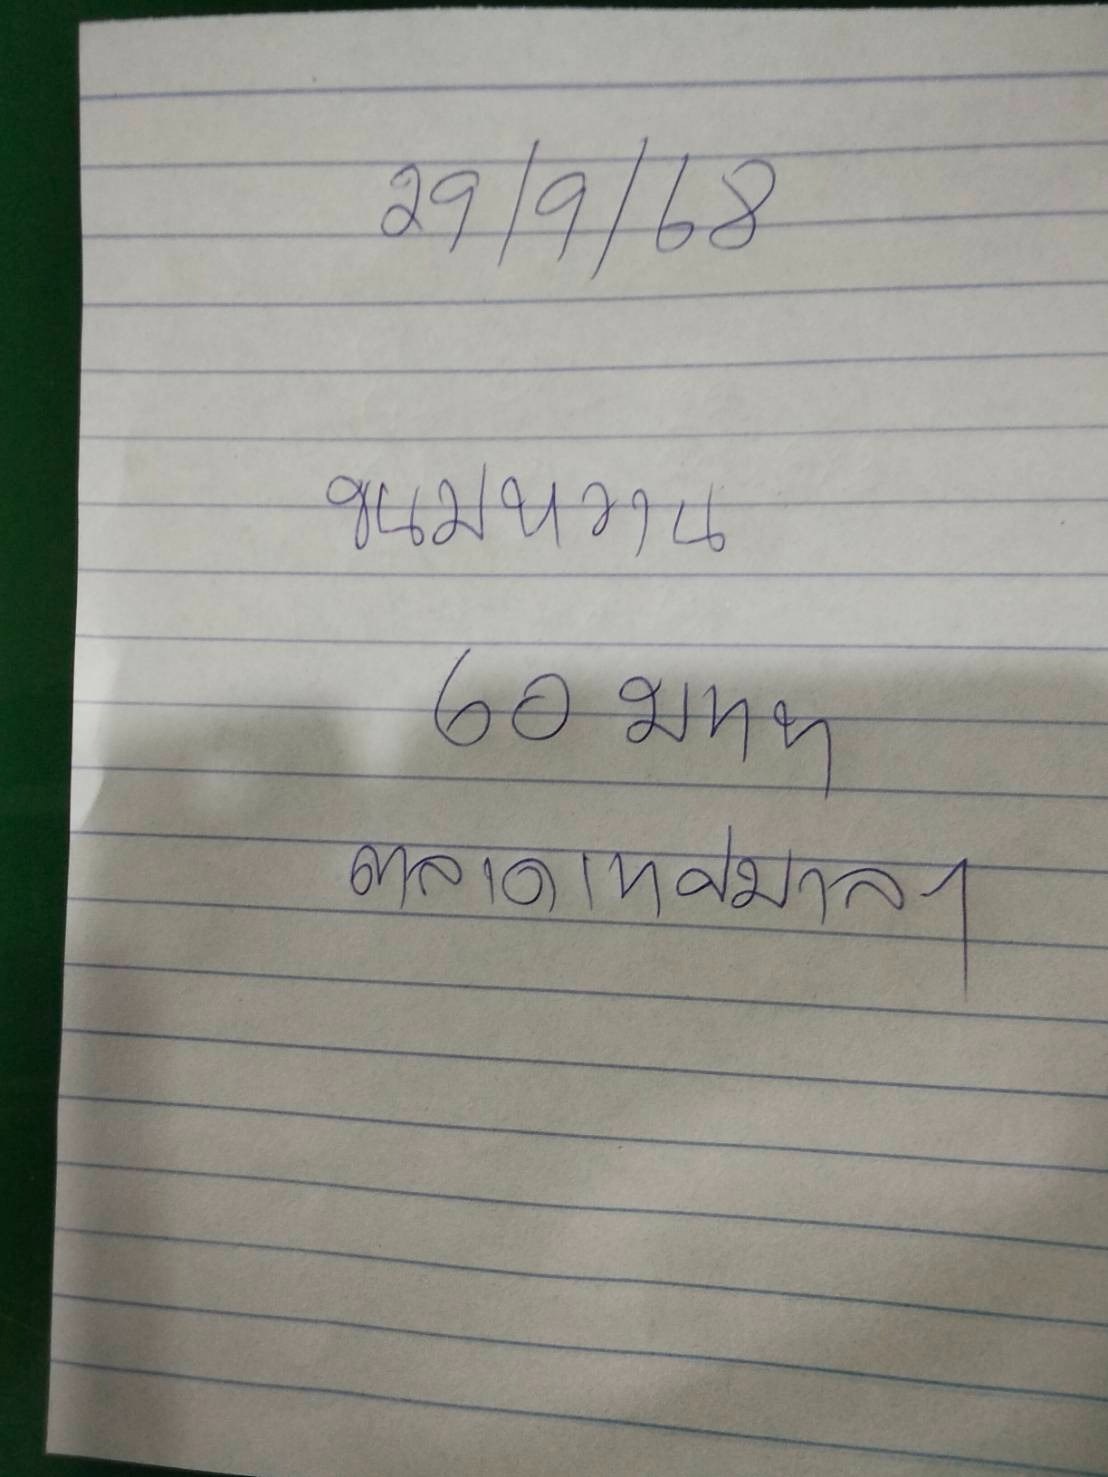 29/9/68
ขนมหวาน
60 บาท
ตลาดเทศบาล 1